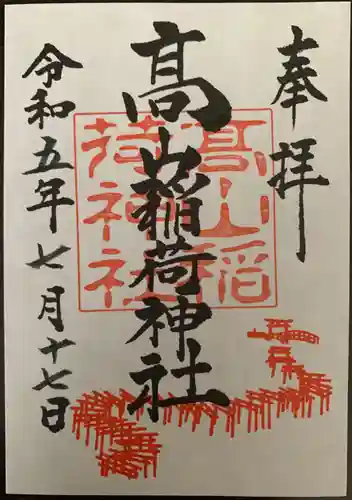 奉拝
髙山稲荷神社
髙山稲
荷神社
令和五年七月十七日